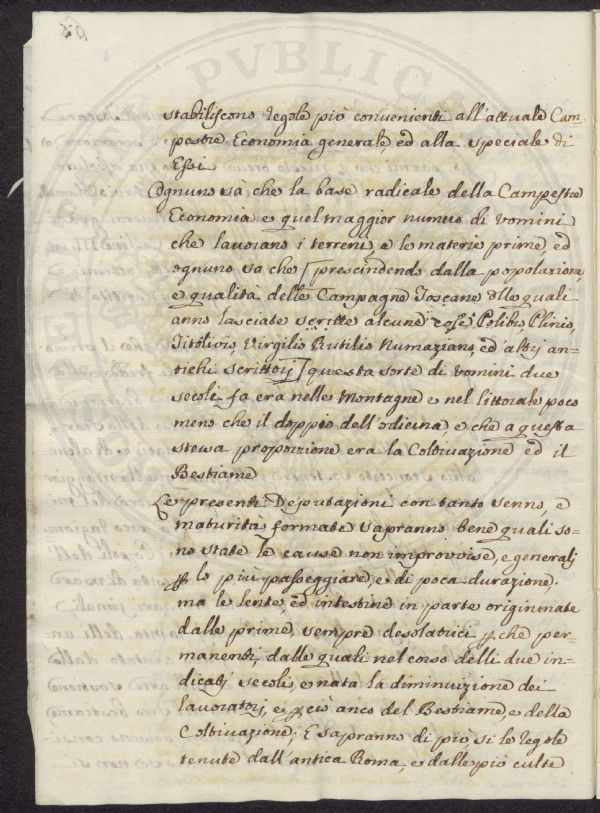 PVBLICA
stabiliscono regole più convenienti all'attuale Cam-
pestre Economia generale, ed alla speciale di
Essi
Ognuno sa che la base radicale della Campestre
Economia e quel maggior numero di vomini
che lavorano i terreni, e le materie prime, ed
ognuno sa che [prescindendo dalla popolazione,
e qualità delle Campagne Toscane delle quali
anno lasciate scritte alcune cose Polibio Plinio,
Titolivio, Virgilio Rutilio Numaziano, ed altrj an-
tichi scrittorj] questa sorte di vomini due
secoli fa era nelle Montagne e nel littorale poco
meno che il doppio dell'odierna e che a questa
stessa proporzione era la Coltivazione ed il
Bestiame
Le presenti Deputazioni con tanto senno, e
maturita formate sapranno bene quali so-
no state le cause non improvvise, e generalj
p lo più passeggiare, e di poca durazione;
ma le lente, ed intestine in parte origininate
dalle prime, sempre desolatrici p che per-
manenti, dalle quali nel corso delli due in-
dicatj secoli, e nata la diminuizione dei
lavoratorj, e p ciò anco del Bestiame, e della
Coltivazione; E sapranno di più, si le regole
tenute dall'antica Roma, e dalle più culte